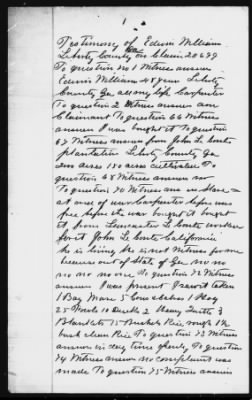 1
Testimony of Edwin William
Liberty County Ga Claim 20689
To question no 1 Witness answer
Edwin William 45 year Liberty
County Ga all my life Carpenter
To question 2 Witness answer am
Claimant To question 66 Witness
answer I was bought it To question
67 Witness answer from John Le Conte
plantation Liberty County Ga
acres 130 acres cultivated To
question 68 Witness answer no
To question 70 Witness ans a Slave
at once of war Carpenter before was
free before the war bought it bought
it from Le Conte
for it John Le Conte California
he is living he is not Witness for me
because out of State of Ga no no
no no no once To question 72 Witness
answer I was present I saw it taken
1 Bay Mare 5 Cows 1 Hog
25 10 Ducks 2
Blankets 75 Bushels Rice rough 1½
bush clean Rice To question 73 Witness
answer in day time To question
74 Witness answer no complaint was
made To question 75 Witness answer